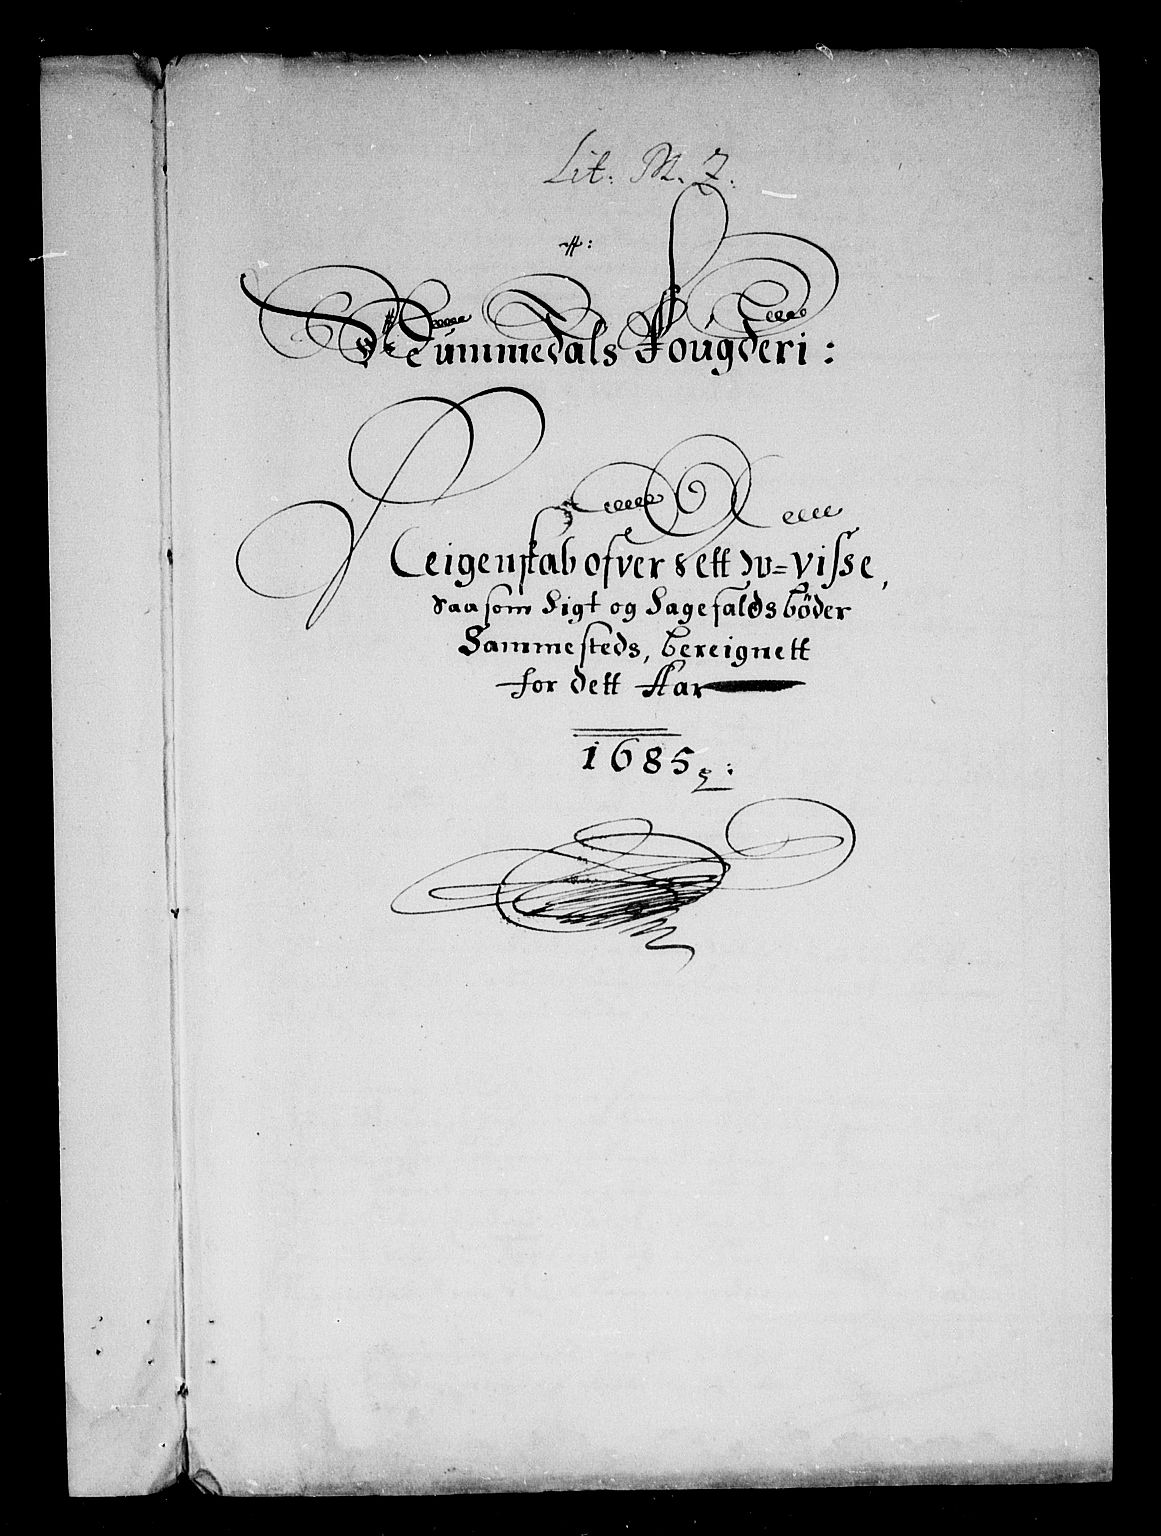 Lit. M. 7.
Nummedals Fougderi:
Reigenskab ofver dett w=visse,
saasom Sigt og Sagefaldsböder
Sammesteds, bereignett
for dett Aar
1685